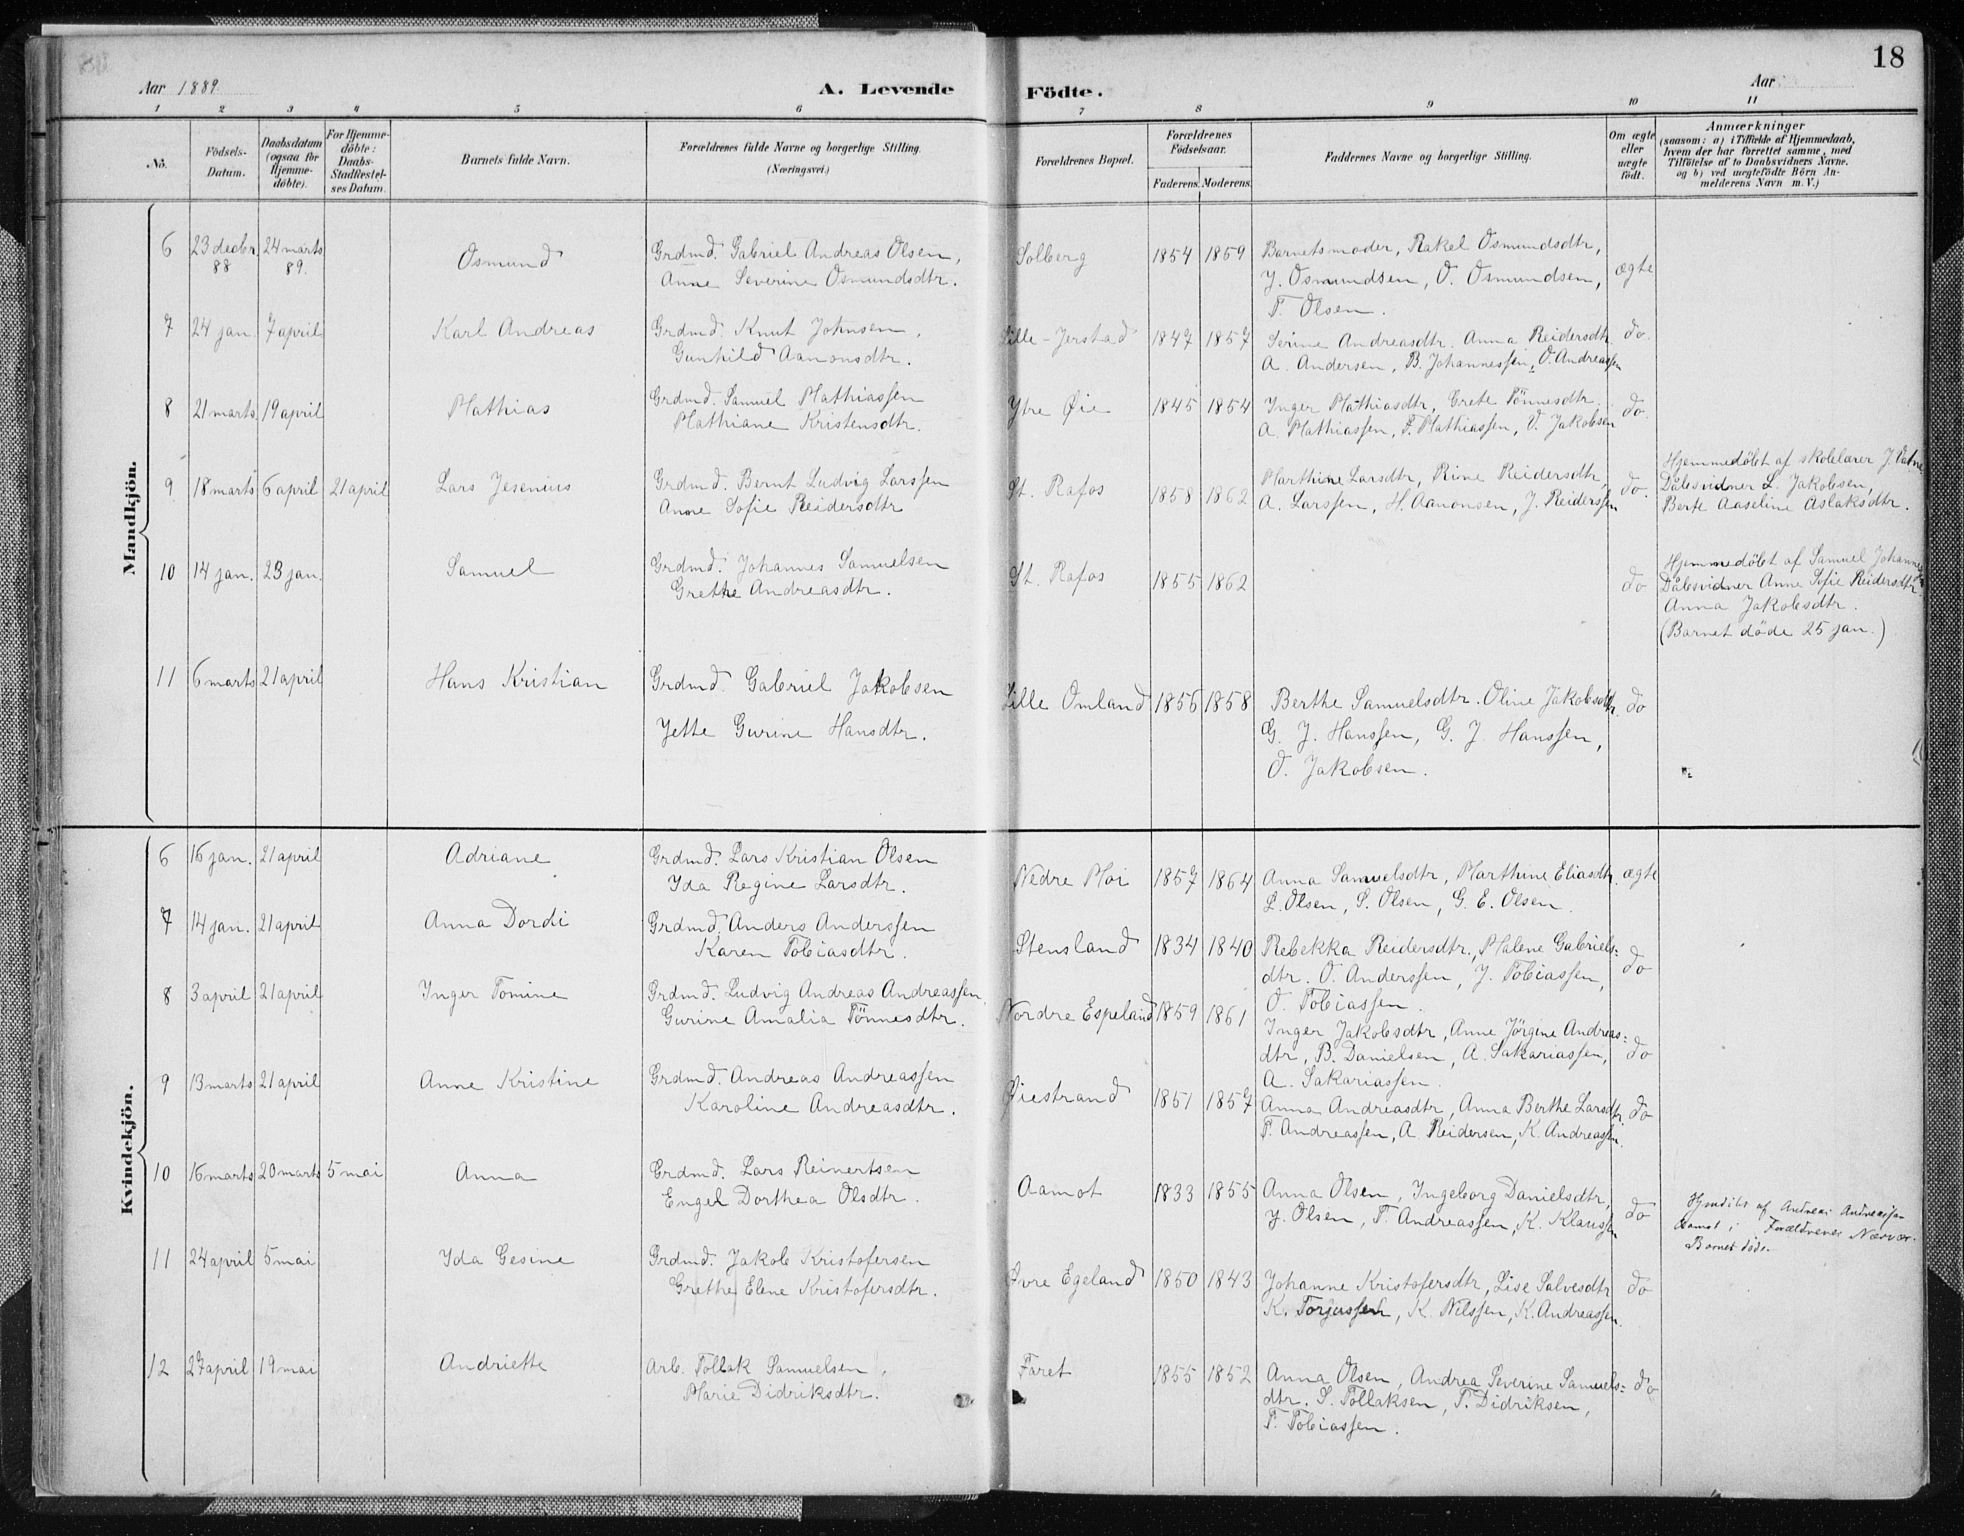 18
Aar 1889
A. Levende Födte.
Aar
1 2 3 4 5 6 7 8 9 10 11
No.
Födsels-Datum.
Daabsdatum (ogsaa for Hjemme-döbte).
For Hjemme-döbte: Daabs-Stadfestel-ses Datum.
Barnets fulde Navn.
Forældrenes fulde Navne og borgerlige Stilling. (Næringsvei.)
Forældrenes Bopæl.
Forældrenes Födselsaar.
Faderens. Moderens.
Faddernes Navne og borgerlige Stilling.
Om ægte eller uægte födt.
Anmærkninger
(saasom: a) i Tilfælde af Hjemmedaab,
hvem der har forrettet samme, med
Tilföielse af to Daabsvidners Navne.
og b) ved uægtefödte Börn An-
melderens Navn m. V.)
Mandkjön.
6 23 decbr. 88 24 marts 89. Osmund Grdmd. Gabriel Andreas Olsen, Solberg 1854 1859 Barnets moder, Rakel Osmundsdtr, ægte
Anne Severine Osmundsdtr. J. Osmundsen, O. Osmundsen,
T. Olsen.
7 24 jan. 7 april Karl Andreas Grdmd. Knut Johnsen, Lille-Jerstad 1847 1857 Serine Andreasdtr. Anna Reidersdtr. do.
Gunhild Aanonsdtr. A. Andersen, B. Johannessen, O. Andreassen
8 21 marts 19 april Mathias Grdmd. Samuel Mathiassen Ytre Øie 1845 1854 Inger Mathiasdtr, Grete Tönnesdtr. do.
Mathiane Kristensdtr. A. Mathiassen, T. Mathiassen, V. Jakobsen
9 18 marts 6 april 21 april Lars Jesenius Grdmd. Bernt Ludvig Larssen St. Rafos 1858 1862 Marthine Larsdtr, Rine Reidersdtr, do. Hjemmedöbt af skolelærer J. Vatne
Anne Sofie Reidersdtr A. Larssen, H. Aanonsen, J. Reiderssen Dåbsvidner L. Jakobsen,
Berte Aaseline Aslaksdtr.
10 14 jan. 23 jan. Samuel Grdmd. Johannes Samuelsen St. Rafos 1855 1862 do Hjemmedöbt af Samuel Johannessen
Grethe Andreasdtr. Dåbsvidner Anne Sofie Reidersdtr.
Anna Jakobsdtr.
(Barnet döde 25 jan.)
11 6 marts 21 april Hans Kristian Grdmd. Gabriel Jakobsen Lille Omland 1856 1858 Berthe Samuelsdtr. Oline Jakobsdtr. do
Jette Gurine Hansdtr. G. J. Hanssen, G. J. Hanssen,
O. Jakobsen.
Kvindekjön.
6 16 jan. 21 april Adriane Grdmd. Lars Kristian Olsen Nedre Moi 1857 1864 Anna Samuelsdtr, Marthine Eliasdtr. ægte
Ida Regine Larsdtr. L. Olsen, S. Olsen, G. E. Olsen.
7 14 jan. 21 april Anna Dordi Grdmd. Anders Anderssen Stensland 1834 1840 Rebekka Reidersdtr., Malene Gabriels-
Karen Tobiasdtr. dtr. O. Anderssen, J. Tobiassen, do
O. Tobiassen.
8 3 april 21 april Inger Tomine Grdmd. Ludvig Andreas Andreassen, Nordre Espeland 1859 1861 Inger Jakobsdtr, Anne Jörgine Andreas-
Gurine Amalia Tönnesdtr. dtr, B. Danielsen, A. Sakariassen, do
A. Sakariassen.
9 13 marts 21 april Anne Kristine Grdmd. Andreas Andreassen Øiestrand 1851 1857 Anna Andreasdtr, Anna Berthe Larsdtr. do
Karoline Andreasdtr. T. Andreassen, A. Reidersen, K. Andreassen.
10 16 marts 20 marts 5 mai Anna Grdmd. Lars Reinertsen Aamot 1833 1855 Anna Olsen, Ingeborg Danielsdtr, do
Engel Dorthea Olsdtr. J. Olsen, T. Andreassen, K. Klaussen
Hjmdöbt af Andreas Andreassen
Aamot i Forældrenes Nærvær.
Barnet döde.
11 24 april 5 mai Ida Gesine Grdmd. Jakob Kristofersen Øvre Egeland 1850 1843 Johanne Kristofersdtr, Lise Salvesdtr do
Grethe Elene Kristofersdtr. K. Torjussen, K. Nilssen, K. Andreassen.
12 27 april 19 mai Andriette Arb. Tollak Samuelsen, Faret 1855 1852 Anna Olsen, Andrea Severine Samuels- do
Marie Didriksdtr. dtr. S. Tollaksen, T. Didriksen,
T. Tobiassen.